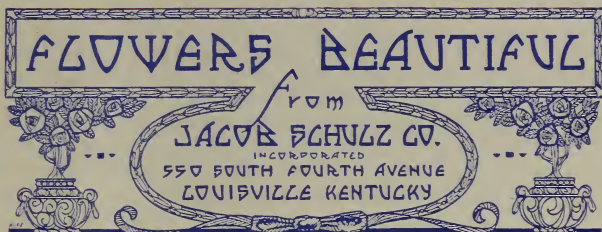 FLOWERS BEAUTIFUL
From
JACOB SCHULZ CO.
INCORPORATED
550 SOUTH FOURTH AVENUE
LOUISVILLE KENTUCKY